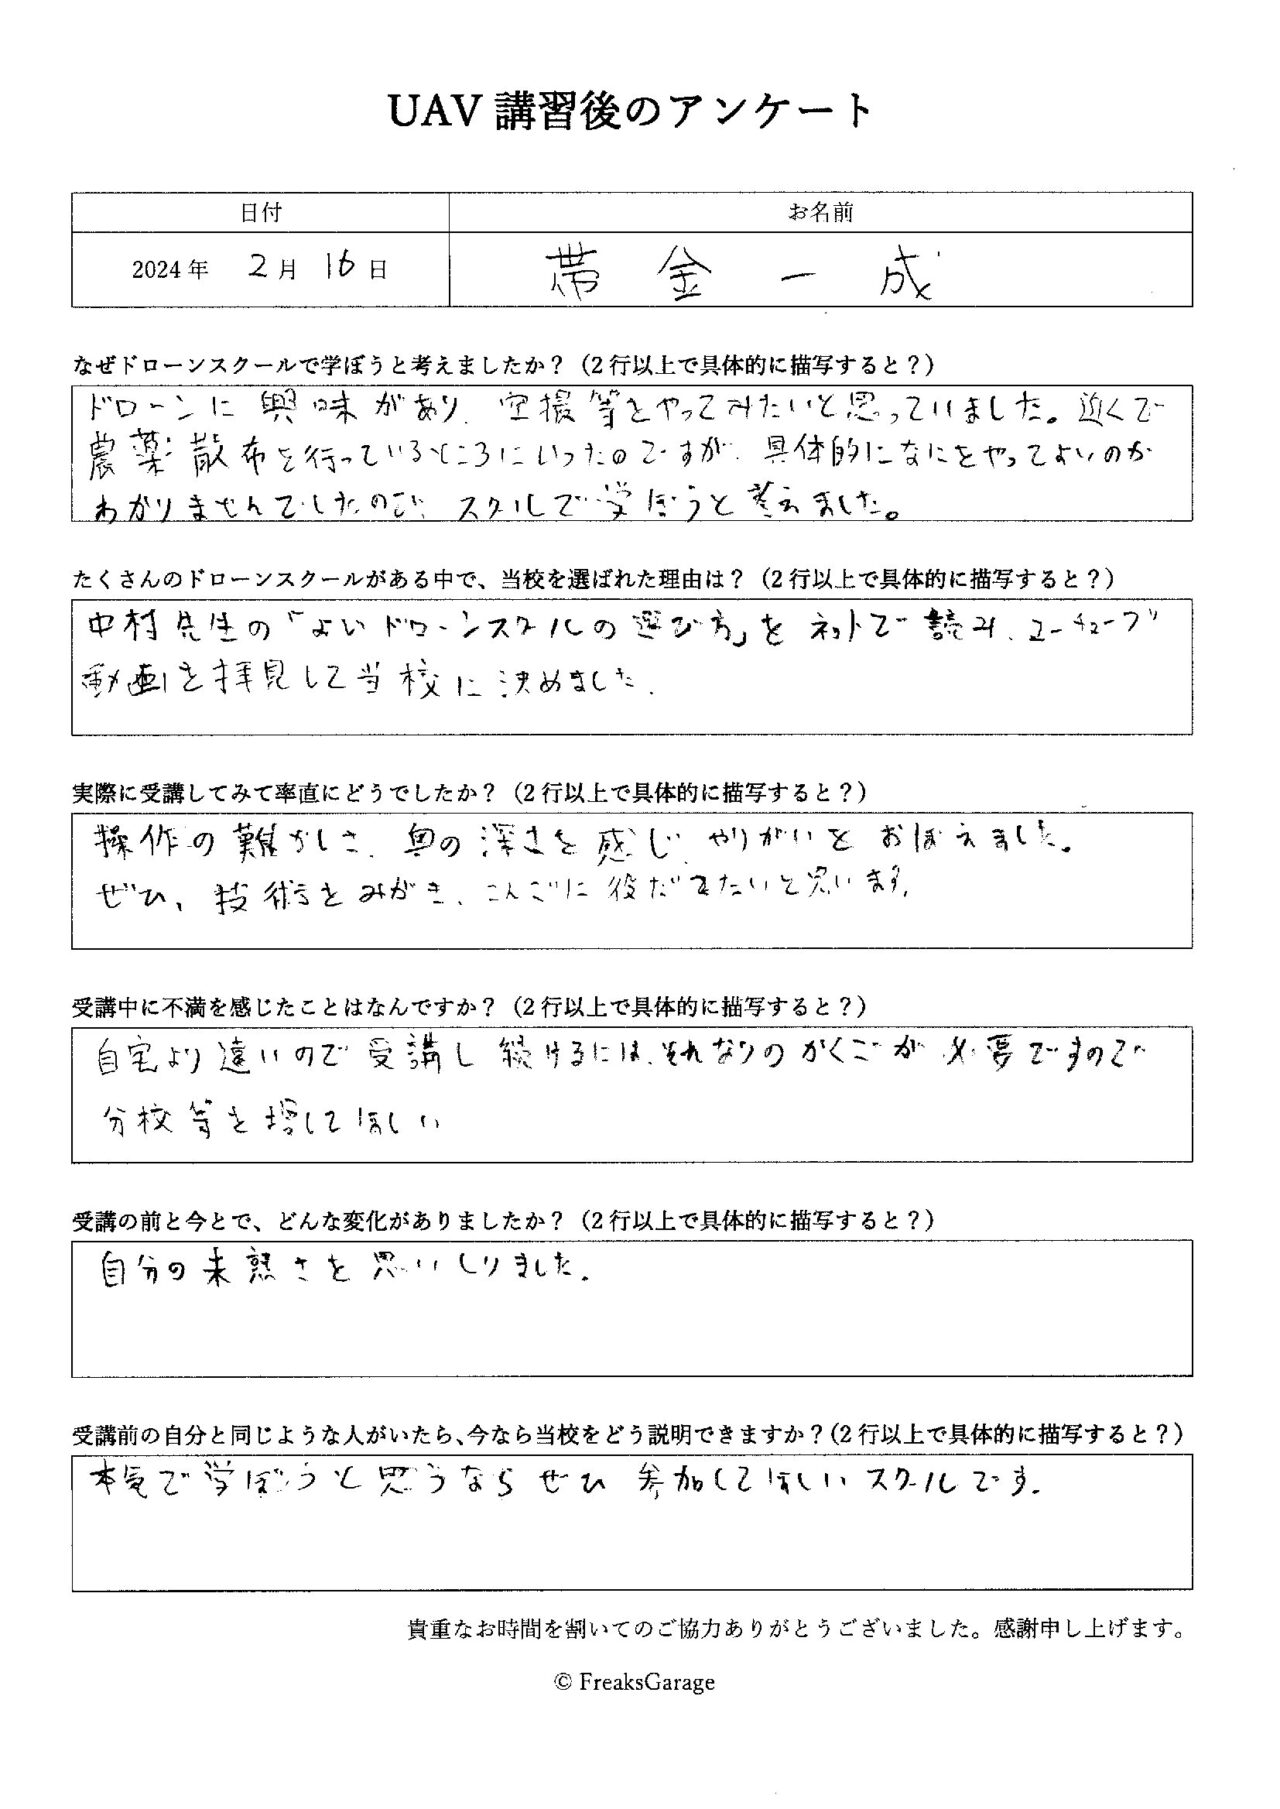 UAV 講習後のアンケート
日付
お名前
2024 年 2 月 16 日
帯金一成
なぜドローンスクールで学ぼうと考えましたか？（2 行以上で具体的に描写すると？）
ドローンに興味があり、空撮等をやってみたいと思っていました。近くで
農薬散布を行っているところにいったのですが、具体的になにをやってよいのか
わかりませんでしたので、スクルで学ぼうと考えました。
たくさんのドローンスクールがある中で、当校を選ばれた理由は？（2 行以上で具体的に描写すると？）
中村先生の「よいドローンスクルの選び方」をネットで読み、ユーチューブ
動画を拝見して当校に決めました。
実際に受講してみて率直にどうでしたか？（2 行以上で具体的に描写すると？）
操作の難かしさ、奥の深さを感じ、やりがいをおぼえました。
ぜひ、技術をみがき、こんごに役だてたいと思います。
受講中に不満を感じたことはなんですか？（2 行以上で具体的に描写すると？）
自宅より遠いので受講し続けるには、それなりのかくごが必要ですので
分校等を増してほしい
受講の前と今とで、どんな変化がありましたか？（2 行以上で具体的に描写すると？）
自分の未熟さを思いしりました。
受講前の自分と同じような人がいたら、今なら当校をどう説明できますか？（2 行以上で具体的に描写すると？）
本気で学ぼうと思うならぜひ参加してほしいスクールです。
貴重なお時間を割いてのご協力ありがとうございました。感謝申し上げます。
© FreaksGarage